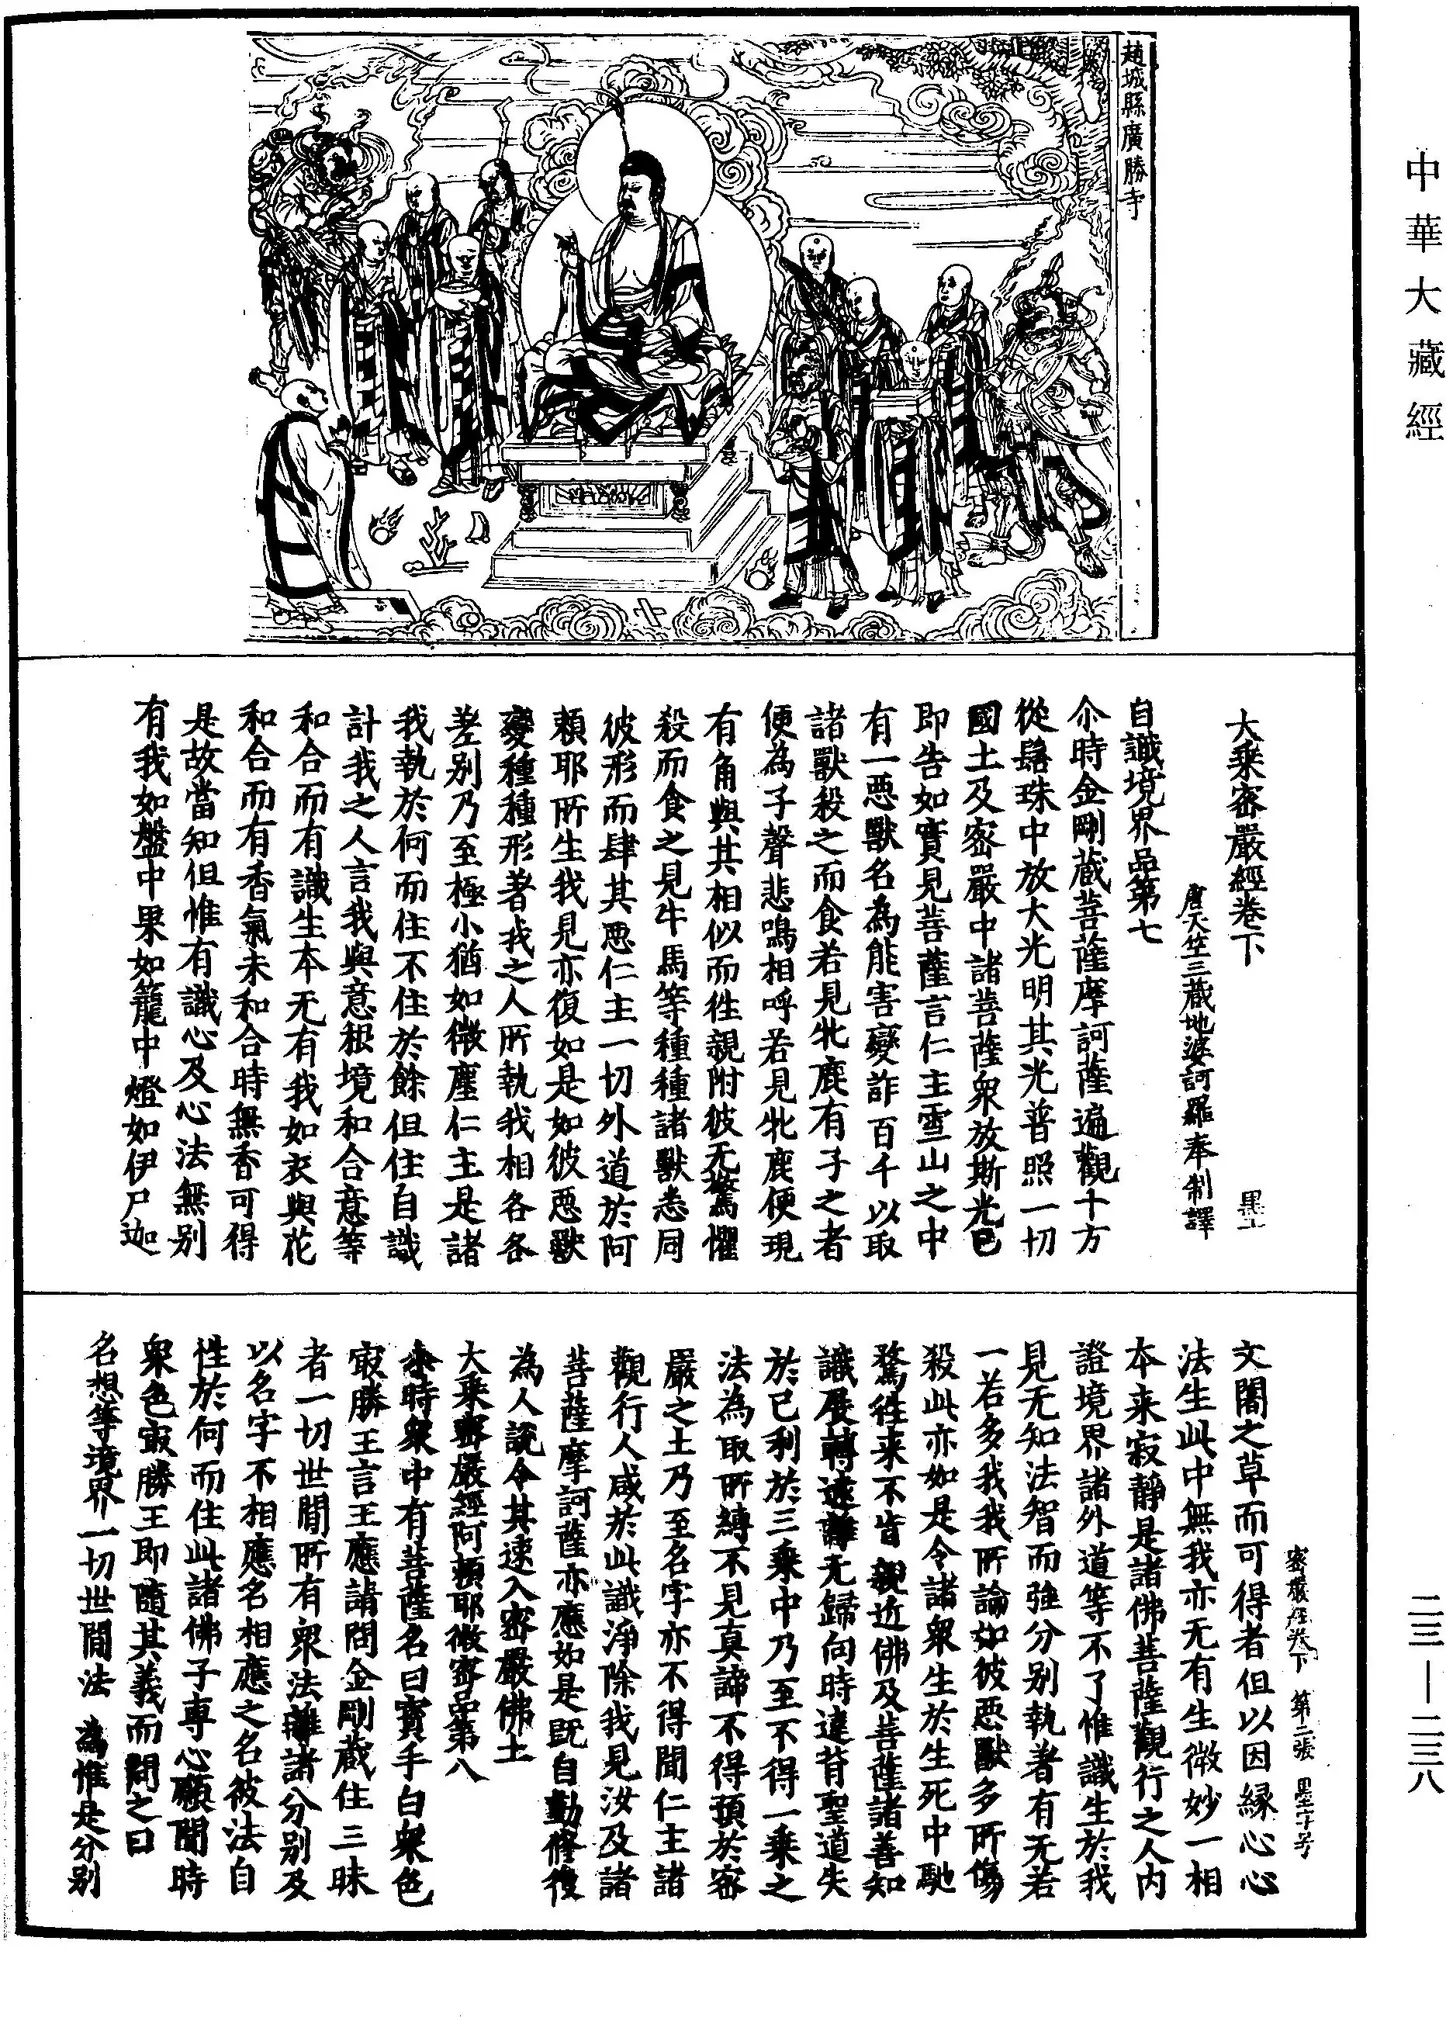 中華大藏經
趙城縣廣勝寺
大乘密嚴經卷下
墨
唐天竺三藏地婆訶羅奉制譯
自識境界品第七
尒時金剛藏菩薩摩訶薩遍觀十方
從髻珠中放大光明其光普照一切
國土及密嚴中諸菩薩衆放斯光已
即告如實見菩薩言仁主雪山之中
有一惡獸名為能害變詐百千以取
諸獸殺之而食若見牝鹿有子之者
便為子聲悲鳴相呼若見牝鹿便現
有角與其相似而徃親附彼无驚懼
殺而食之見牛馬等種種諸獸悉同
彼形而肆其惡仁主一切外道於阿
頼耶所生我見亦復如是如彼惡獸
變種種形著我之人所執我相各各
差别乃至極小猶如微塵仁主是諸
我執於何而住不住於餘但住自識
計我之人言我與意根境和合意等
和合而有識生本无有我如衣與花
和合而有香氣未和合時無香可得
是故當知但惟有識心及心法無别
有我如盤中果如籠中燈如伊尸迦
密嚴經卷下 第二張 墨字号
文闍之草而可得者但以因緣心心
法生此中無我亦无有生微妙一相
本来寂靜是諸佛菩薩觀行之人内
證境界諸外道等不了惟識生於我
見无知法智而強分别執著有无若
一若多我我所論如彼惡獸多所傷
殺此亦如是令諸衆生於生死中馳
騖徃来不肯親近佛及菩薩諸善知
識展轉遠離无歸向時違背聖道失
於己利於三乘中乃至不得一乘之
法為取所縛不見真諦不得預於密
嚴之土乃至名字亦不得聞仁主諸
觀行人咸於此識淨除我見汝及諸
菩薩摩訶薩亦應如是既自勤修復
為人說令其速入密嚴佛土
大乘密嚴經阿頼耶微密品第八
尒時衆中有菩薩名曰寳手白衆色
㝡勝王言王應請問金剛藏住三昧
者一切世間所有衆法離諸分别及
以名字不相應名相應之名彼法自
性於何而住此諸佛子專心願聞時
衆色㝡勝王即隨其義而問之曰
名想等境界一切世間法 為惟是分别
二三—二三八